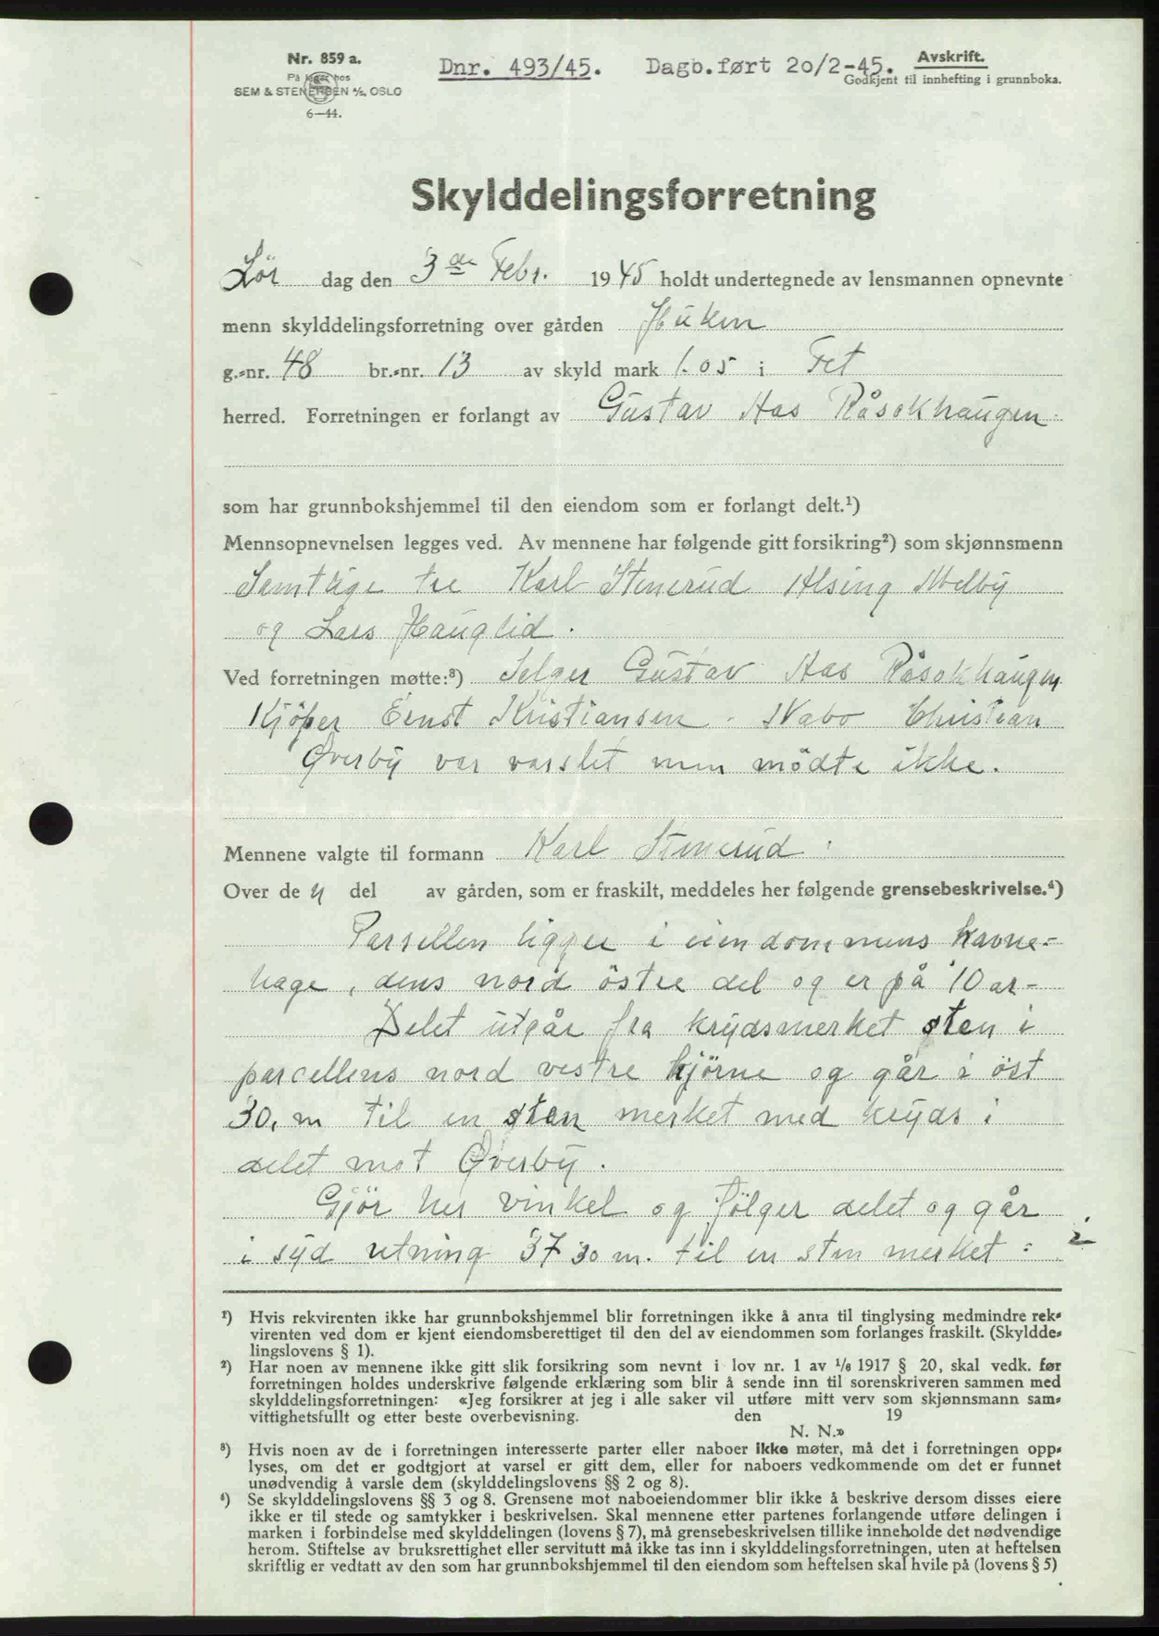 Nr. 859 a.
På lager hos
SEM & STENERSEN A/S, OSLO
6—44.
Dnr. 493/45. Dagb.ført 20/2-45.
Avskrift.
Godkjent til innhefting i grunnboka.
Skylddelingsforretning
Lør dag den 3 de Febr. 1945 holdt undertegnede av lensmannen opnevnte
menn skylddelingsforretning over gården Huken
g.-nr. 48 br.-nr. 13 av skyld mark 1.05 i Fet
herred. Forretningen er forlangt av Gustav Aas Råsokhaugen.
som har grunnbokshjemmel til den eiendom som er forlangt delt.¹)
Mennsopnevnelsen legges ved. Av mennene har følgende gitt forsikring²) som skjønnsmenn
Samtlige tre Karl Stenerud Alsing Melby
og Lars Hauglid.
Ved forretningen møtte:³) Selger Gustav Aas Råsokhaugen
Kjöper Ernst Kristiansen. Nabo Christian
Øverby var varslet men mödte ikke.
Mennene valgte til formann Karl Stenerud.
Over de n del av gården, som er fraskilt, meddeles her følgende grensebeskrivelse.⁴)
Parsellen ligger i eiendommens havne=
hage, dens nord östre del og er på 10 ar-
Delet utgår fra krydsmerket sten i
parcellens nord vestre hjörne og går i öst
30. m til en sten merket med kryds i
delet mot Øverby.
Gjör her vinkel og fölger delet og går
i syd retning 37 30 m. til en sten merket = i
¹) Hvis rekvirenten ikke har grunnbokshjemmel blir forretningen ikke å anta til tinglysing medmindre rek-
virenten ved dom er kjent eiendomsberettiget til den del av eiendommen som forlanges fraskilt. (Skyldde-
lingslovens § 1).
²) Har noen av mennene ikke gitt slik forsikring som nevnt i lov nr. 1 av 1/6 1917 § 20, skal vedk. før
forretningen holdes underskrive følgende erklæring som blir å sende inn til sorenskriveren sammen med
skylddelingsforretningen: «Jeg forsikrer at jeg i alle saker vil utføre mitt verv som skjønnsmann sam-
vittighetsfullt og etter beste overbevisning. den 19
N. N.»
³) Hvis noen av de i forretningen interesserte parter eller naboer ikke møter, må det i forretningen opp-
lyses, om det er godtgjort at varsel er gitt dem, eller for naboers vedkommende om det er funnet
unødvendig å varsle dem (skylddelingslovens §§ 2 og 8).
⁴) Se skylddelingslovens §§ 3 og 8. Grensene mot naboeiendommer blir ikke å beskrive dersom disses eiere
ikke er til stede og samtykker i beskrivelsen. Skal mennene etter partenes forlangende utføre delingen i
marken i forbindelse med skylddelingen (lovens § 7), må grensebeskrivelsen tillike inneholde det nødvendige
herom. Stiftelse av bruksrettighet eller servitutt må ikke tas inn i skylddelingsforretningen, uten at heftelsen
skriftlig er vedtatt av den som har grunnbokshjemmel til den eiendom som heftelsen skal hvile på (lovens § 5)